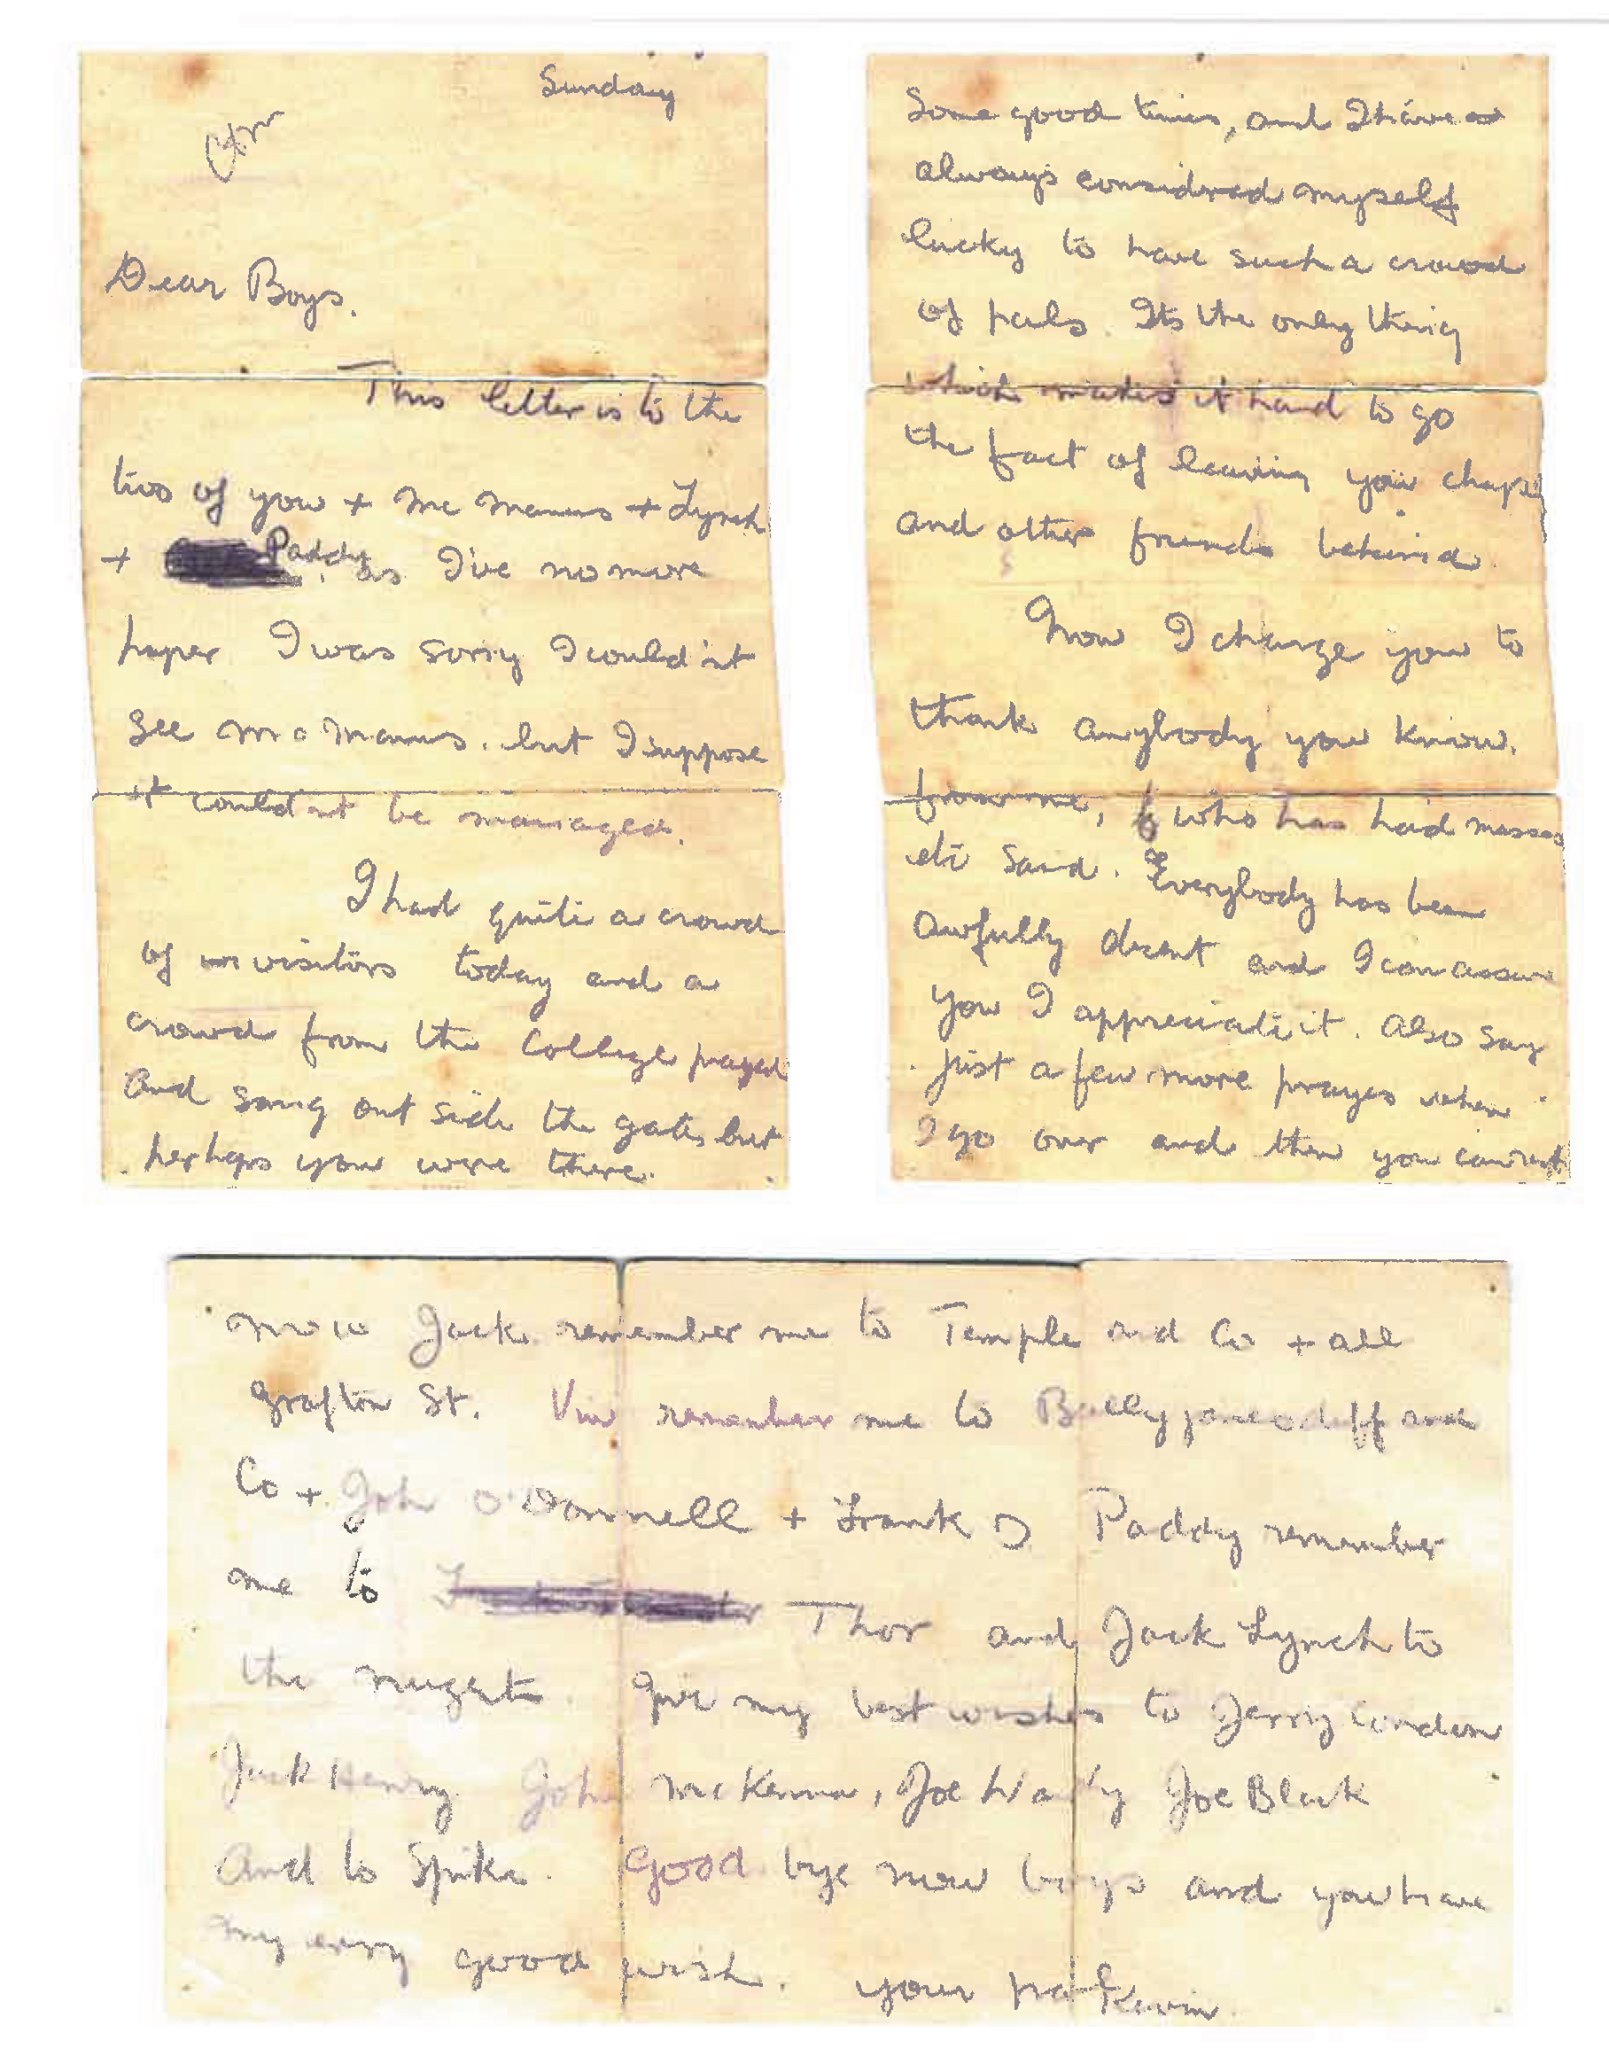 Sunday
Dear Boys.
This letter is to the
two of you + Mc Manus + Lynch
+ Paddy as I've no more
paper I was sorry I could'nt
see Mc Manus. but I suppose
it could'nt be managed.
I had quite a crowd
of visitors today and a
crowd from the College prayed
and sang out side the gates but
perhaps you were there.
Some good times, and I have
always considered myself
lucky to have such a crowd
of pals. Its the only thing
which makes it hard to go
the fact of leaving you chaps
and other friends behind.
Now I charge you to
thank anybody you know.
from me, who has had masses
etc said. Everybody has been
awfully decent and I can assure
you I appreciate it. Also say
just a few more prayes when
I go over and then you can rest
Now Jack remember me to Temple and Co + all
Grafton St. Vin remember me to and
Co + John O'Donnell + Frank O Paddy remember
me to Thor and Jack Lynch to
the Nugents. Give my best wishes to Jerry Conden
Jack Henry John McKenna, Joe Joe Black
and to Spike. Good bye now boys and you have
my every good wish. your pal Kevin.